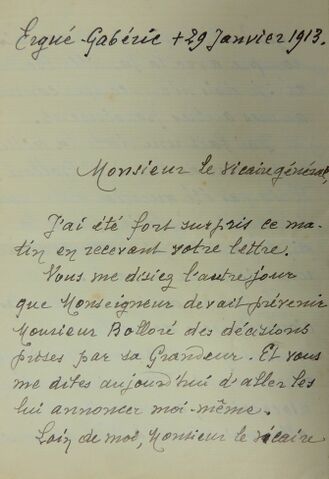 Ergué-Gabéric + 29 Janvier 1913.
Monsieur le vicaire général,
J'ai été fort surpris ce ma-
tin en recevant votre lettre.
Vous me disiez l'autre jour
que Monseigneur devait prévenir
Monsieur Bolloré des décisions
prises par sa Grandeur. Et vous
me dites aujourd'hui d'aller les
lui annoncer moi-même.
Loin de moi, Monsieur le vicaire